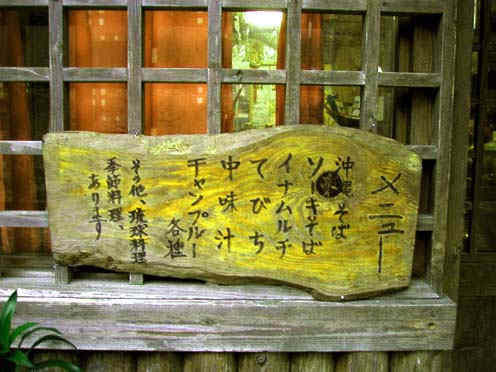 メニュー
沖縄そば
ソーキそば
イナムルチ
てびち
中味汁
チャンプルー各種
その他、琉球料理
季節料理、
あります